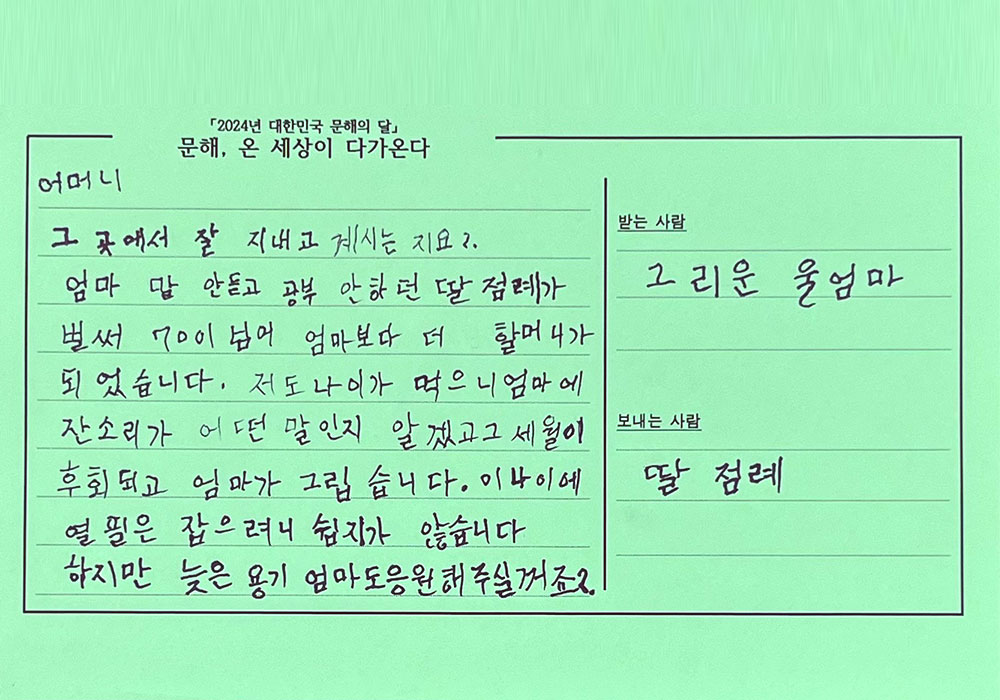 「2024년 대한민국 문해의 달」
문해, 온 세상이 다가온다
어머니
그 곳에서 잘 지내고 계시는 지요?.
엄마 말 안듣고 공부 안하던 딸 점례가
벌써 70이 넘어 엄마보다 더 할머니가
되었습니다. 저도 나이가 먹으니 엄마에
잔소리가 어떤 말인지 알겠고 그 세월이
후회되고 엄마가 그립습니다. 이 나이에
열필은 잡으려니 쉽지가 않습니다
하지만 늦은 용기 엄마도 응원해주실꺼죠?.
받는 사람
그리운 울엄마
보내는 사람
딸 점례